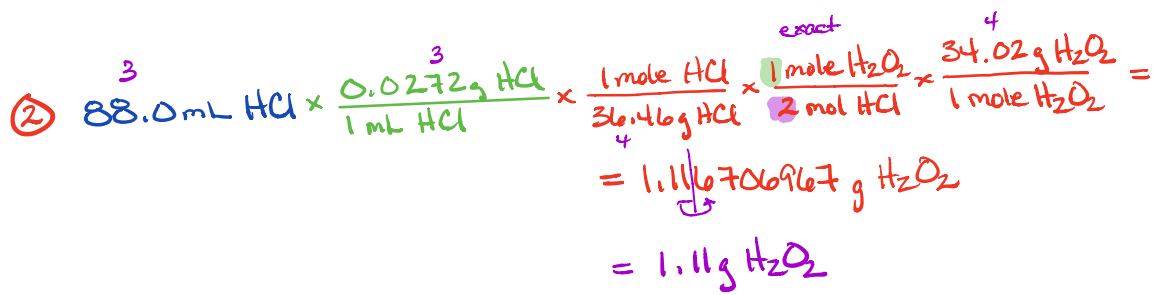 exact
3 3 4
② 88.0mL HCl × 0.0272g HCl / 1 mL HCl × 1 mole HCl / 36.46g HCl × 1 mole H₂O₂ / 2 mol HCl × 34.02g H₂O₂ / 1 mole H₂O₂ =
4
= 1.116706967 g H₂O₂
= 1.11g H₂O₂